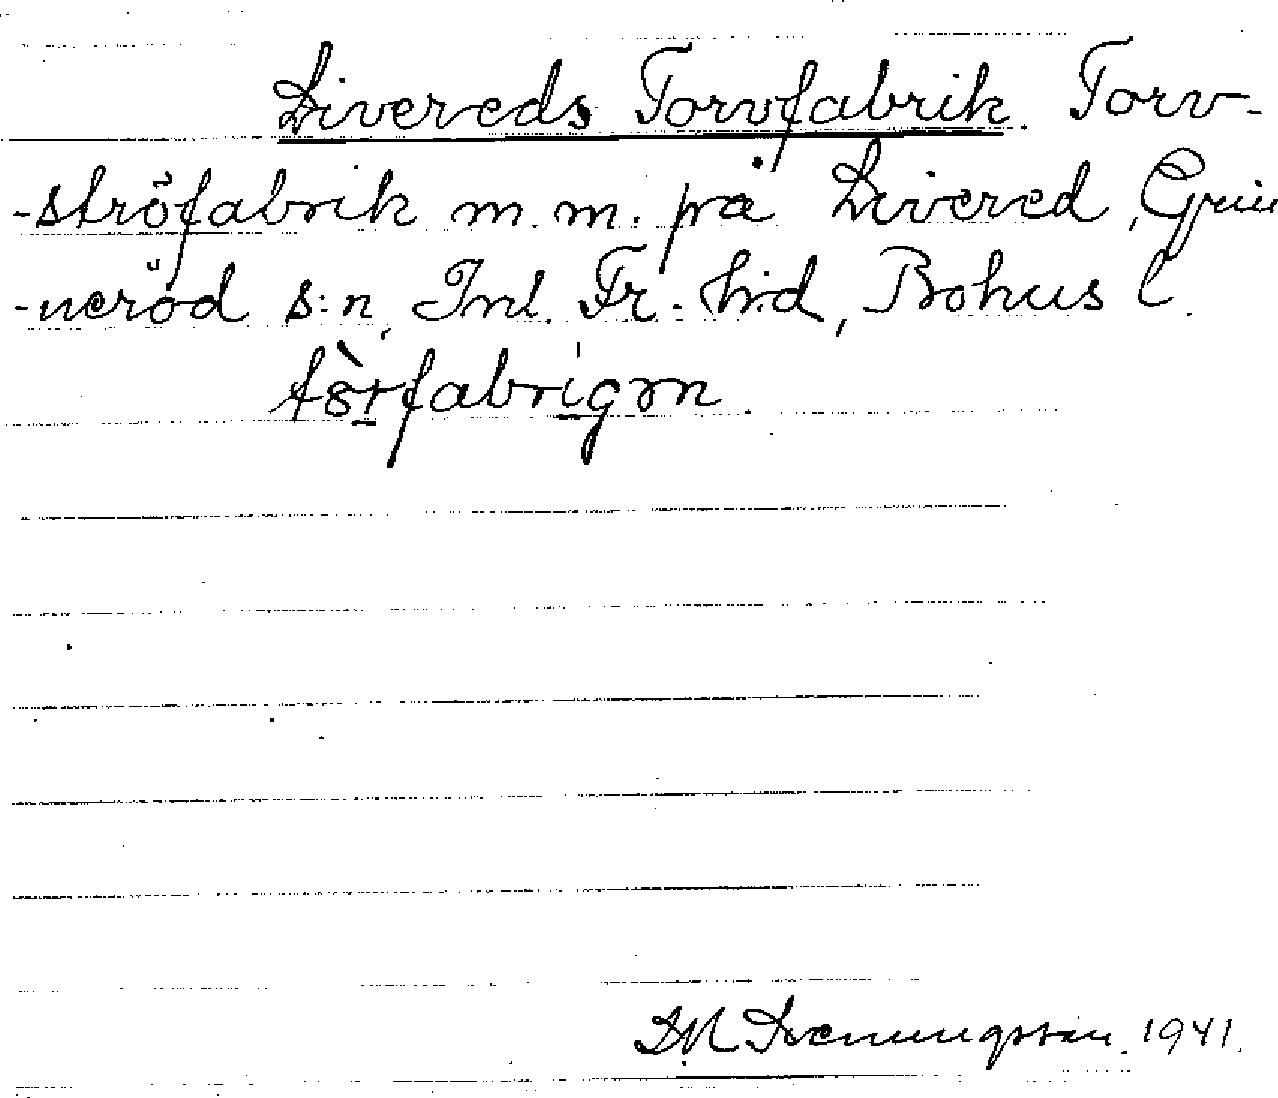 Livereds Torvfabrik. Torv-
-ströfabrik m.m. på Livered, Grin
-neröd s:n, Inl. Fr. hrd, Bohus l.
fabrigɷn.
1941.